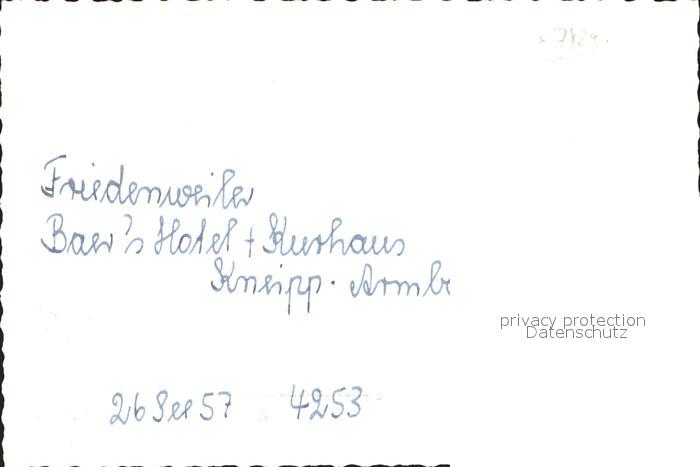 7829.
Friedenweiler
Baer's Hotel + Kurhaus
Kneipp. Armb
privacy protection
Datenschutz
26 57 4253